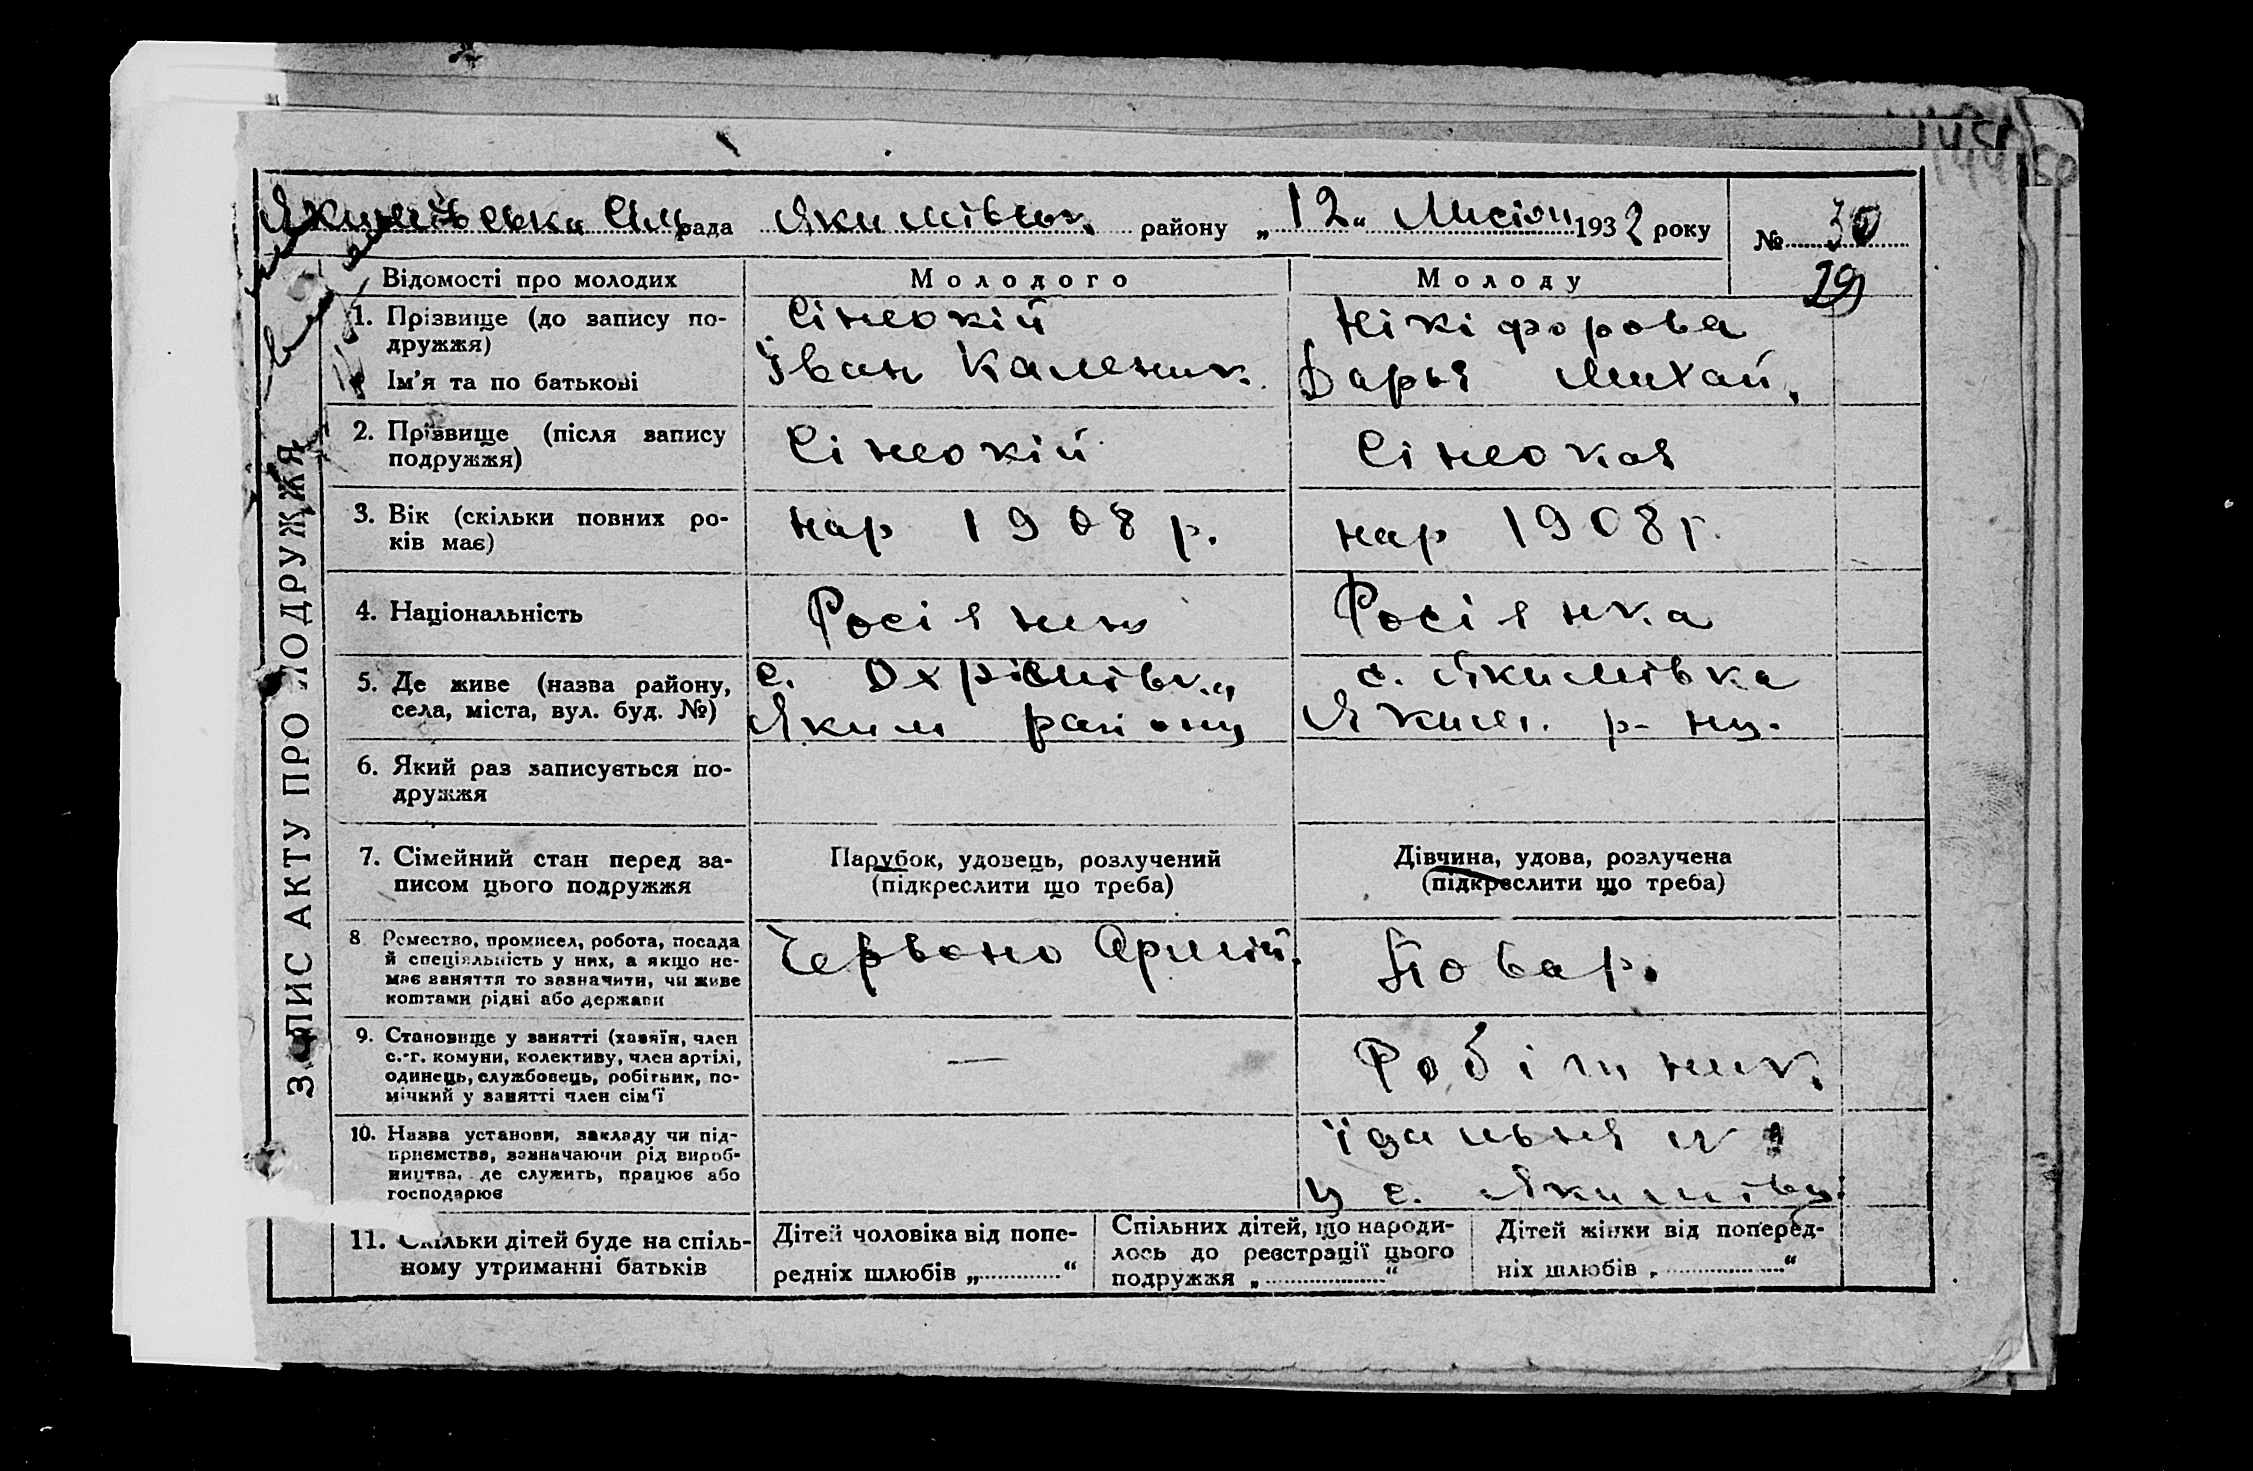 Якимівська Сільрада Якимівськ. району „12“ Листоп 1932 року № 30
29
Відомості про молодих Молодого Молоду
1. Прізвище (до запису подружжя) Сінеокій Нікіфорова
Ім'я та по батькові Іван Каленик. Дарья Михай.
2. Прізвище (після запису подружжя) Сінеокій Сінеокая
3. Вік (скільки повних років має) нар 1908 р. нар 1908 р.
4. Національність Росіянин Росіянка
5. Де живе (назва району, села, міста, вул. буд. №) с. Охрімівка Яким району с. Якимівка Яким. р-ну.
6. Який раз записується подружжя
7. Сімейний стан перед записом цього подружжя Парубок, удовець, розлучений (підкреслити що треба) Дівчина, удова, розлучена (підкреслити що треба)
8. Ремество, промисел, робота, посада й спеціяльність у них, а якщо немає заняття то зазначити, чи живе коштами рідні або держави Червоно Армій. Повар.
9. Становище у занятті (хазяїн, член с.-г. комуни, колективу, член артілі, одинець, службовець, робітник, помічний у занятті член сім'ї — Робітник.
10. Назва установи, закладу чи підприємства, зазначаючи рід виробництва, де служить, працює або господарює їдальня № у с. Якимівц.
11. Скільки дітей буде на спільному утриманні батьків Дітей чоловіка від попередніх шлюбів „ “ Спільних дітей, що народилось до реєстрації цього подружжя „ “ Дітей жінки від попередніх шлюбів „ “
ЗАПИС АКТУ ПРО ПОДРУЖЖЯ